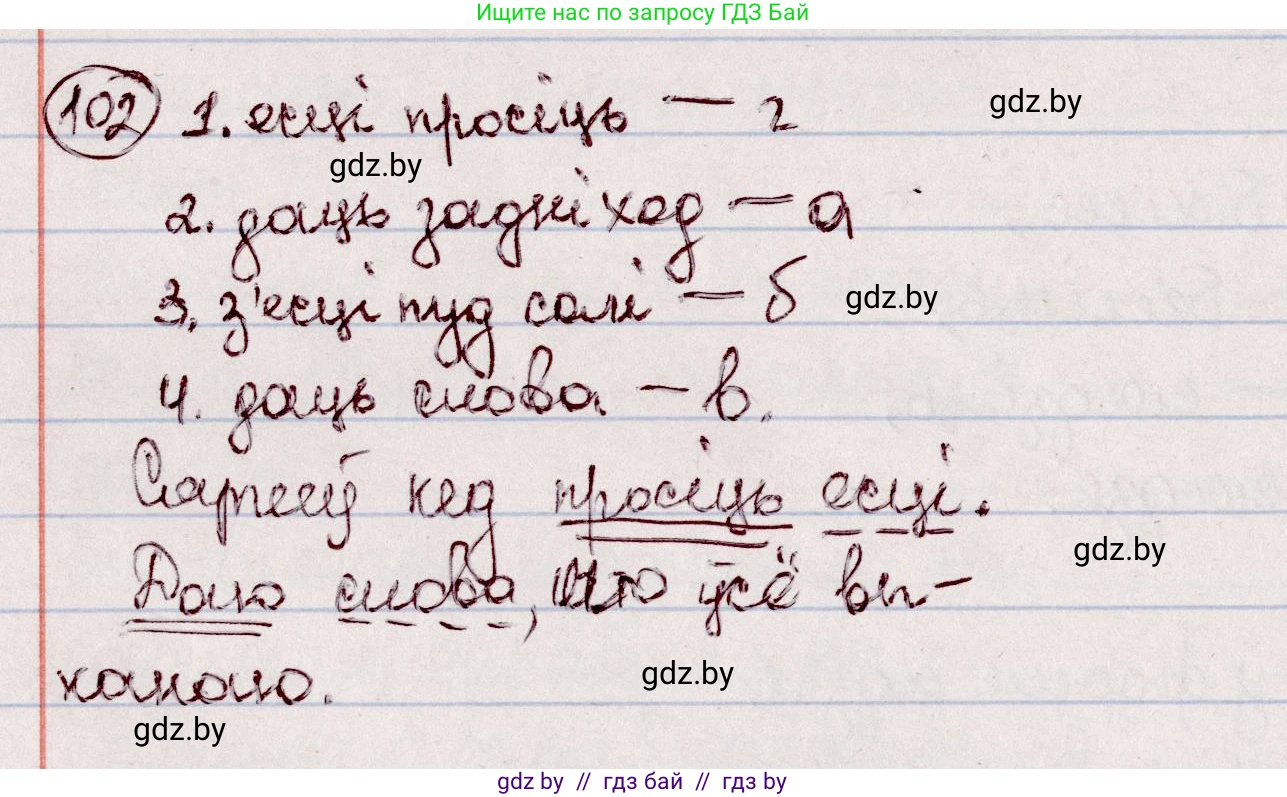 Ищите нас по запросу ГДЗ Бай
102 1. есці просіць — г
gdz.by
gdz.by
2. даць задні ход — а
3. з'есці пуд солі — б
gdz.by
4. даць слова — в.
Сапсеў кед просіць есці.
gdz.by
Даю слова, што ўсё вы-
канаю.
gdz.by
gdz.by
gdz.by // гдз бай // гдз by